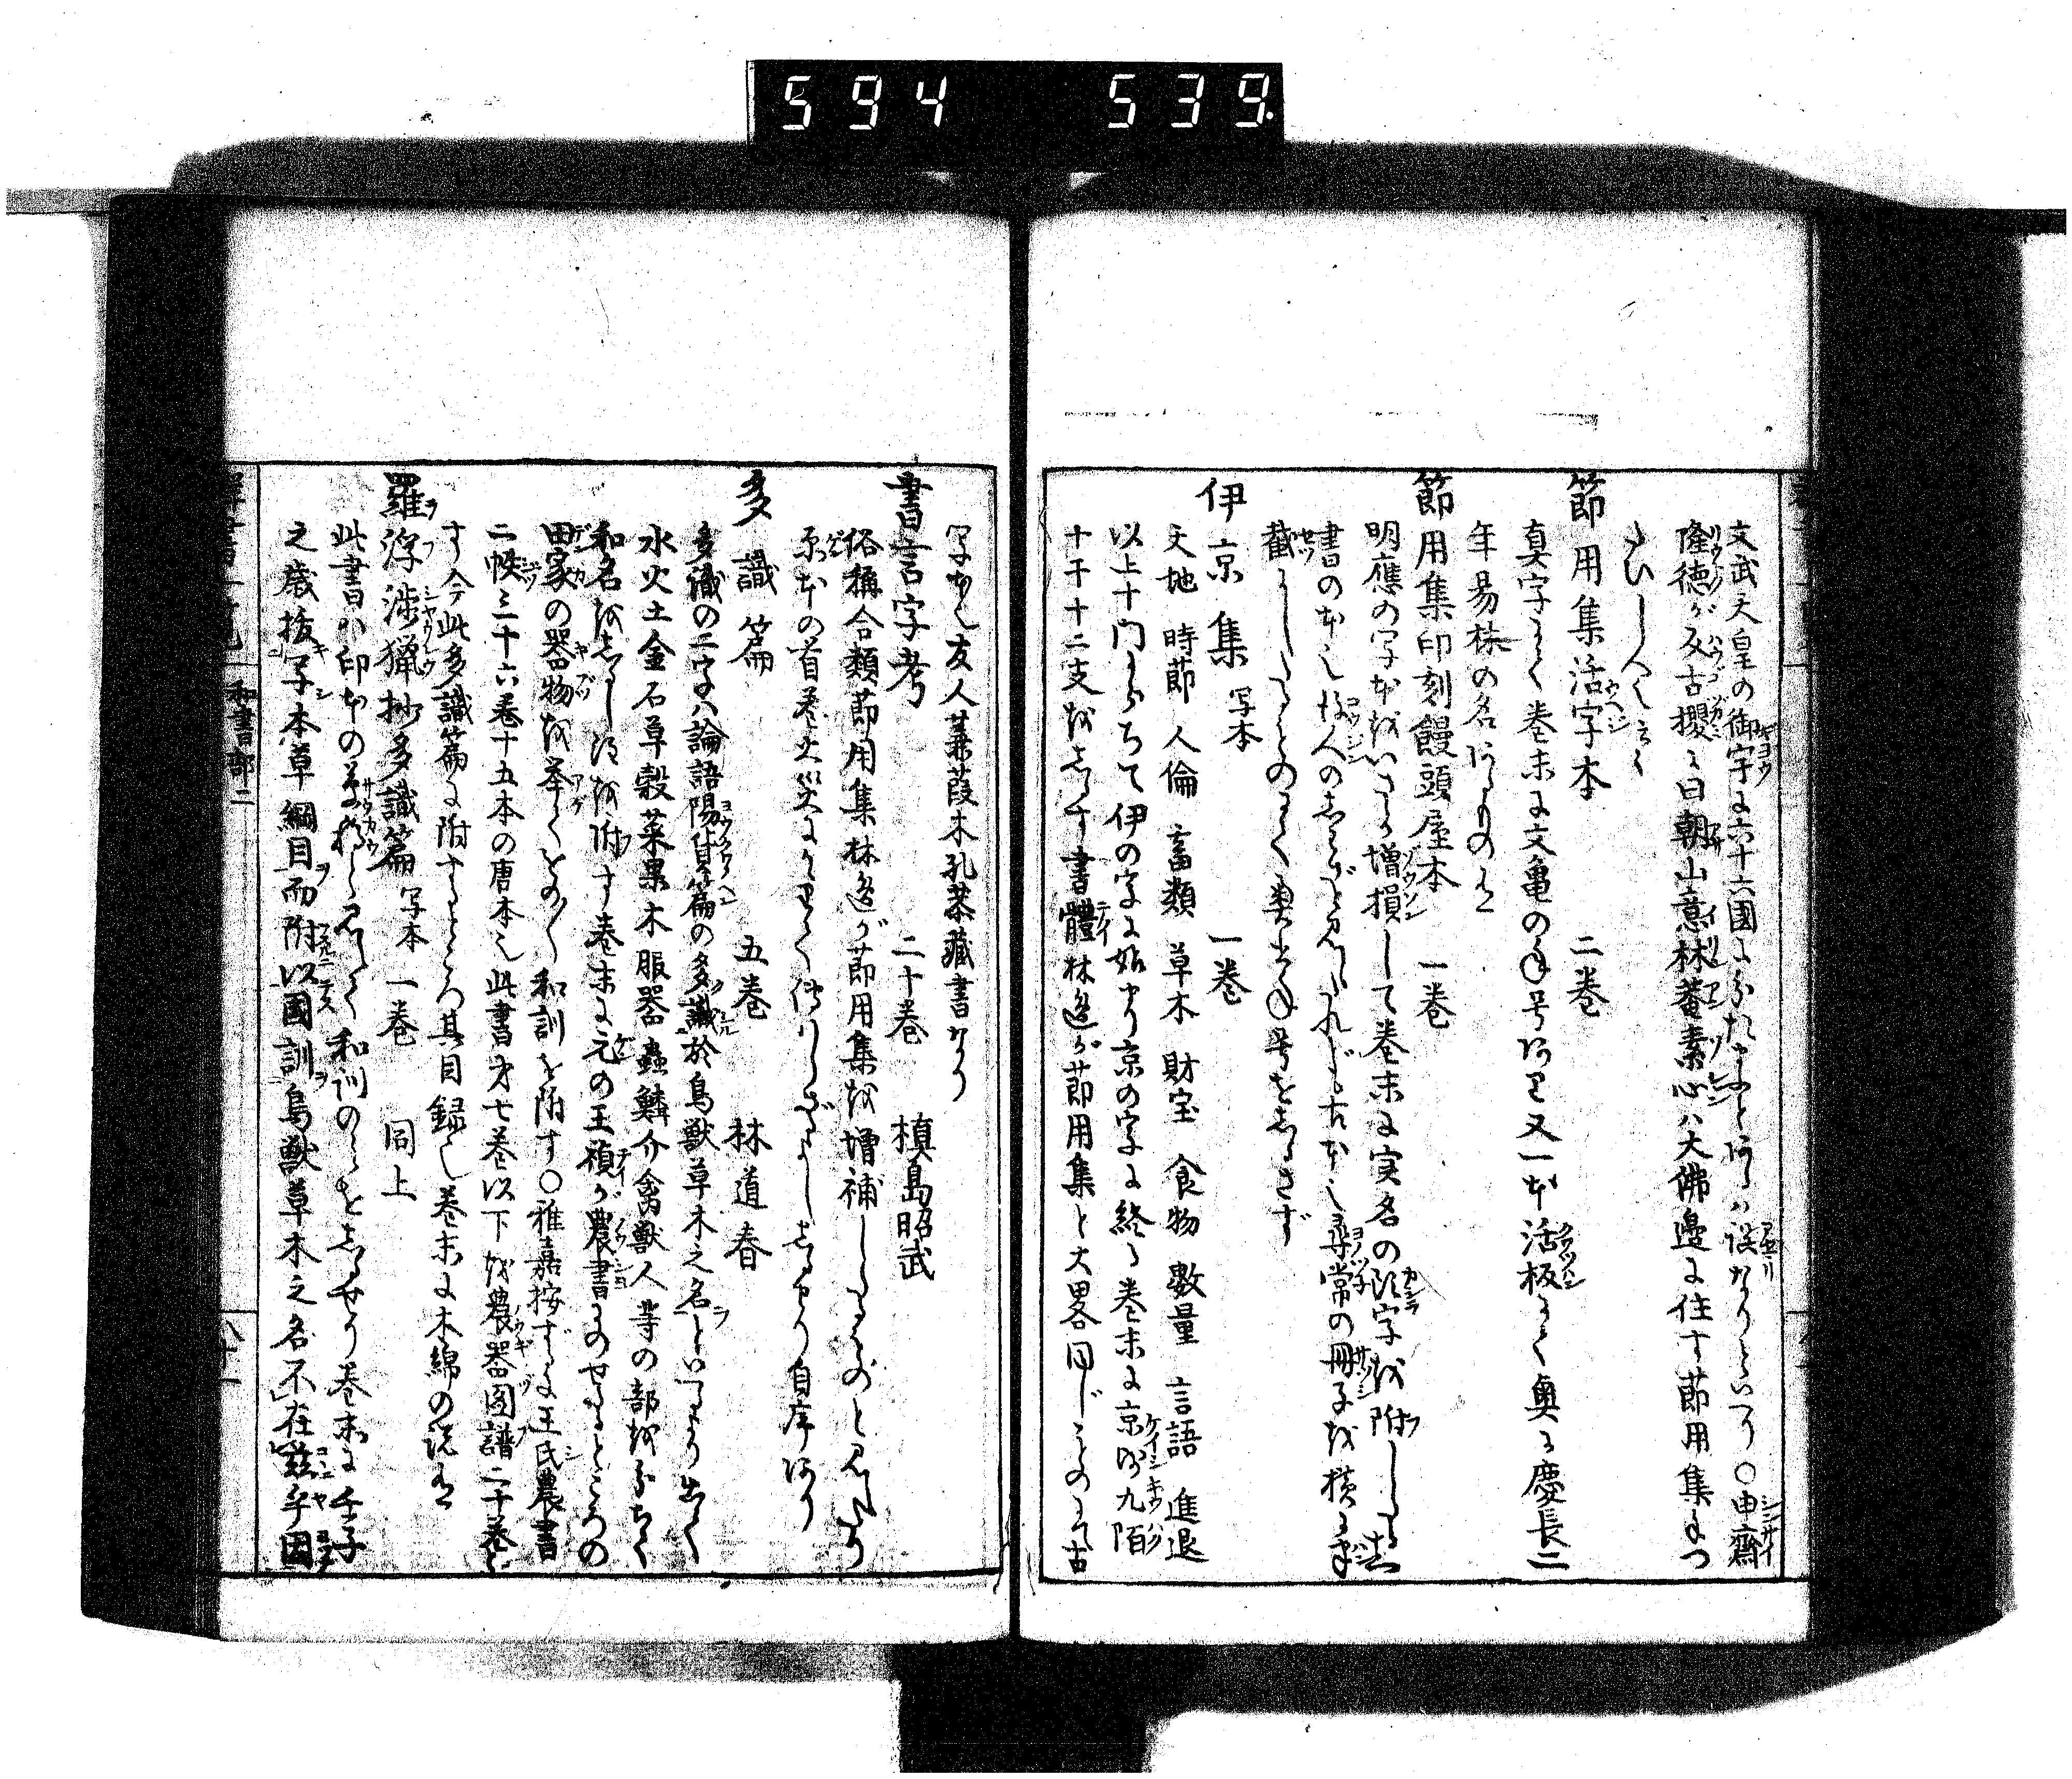 594 539
文武天皇の御宇に六十六國にわかたまふとあるハ誤なりといへり○申齋
隆德が反古攫に曰朝山意林菴素心ハ大佛邊に住す節用集につ
たひし人也云々
節用集活字本 二巻
真字にて巻末に文亀の年号あり又一本活板にて奥に慶長二
年易林の名あるもの也
節用集印刻饅頭屋本 一巻
明應の写本をいさゝか増損して巻末に実名の頭字を附したる古
書のほし也後人の
尋常の冊子を横に半
截したるものにて
伊京集 写本 一巻
天地 時節 人倫 畜類 草木 財宝 食物 數量 言語 進退
以上十門にわかちて伊の字に始まり京の字に終る巻末に京師九陌
十干十二支をしるす書體林逸が節用集と大畧同じものにて古
写本也友人蒹葭木孔恭藏書なり
書言字考 二十巻 槙島昭武
俗稱合類節用集林逸が節用集を増補したるものと見えたり
原本の首巻火災にかゝりて傳はらざるよししるせり自序あり
多識篇 五巻 林道春
多識の二字ハ論語陽貨篇の多識於鳥獸草木之名といへるより出て
水火土金石草穀菜果木服器蟲鱗介禽獸人等の部をわかちて
和名をしるし注を附す巻末に元の王禎が農書にのせるところの
田家の器物を举てもの〳〵和訓を附す○雅嘉按ずるに王氏農書
二帙三十六巻十五本の唐本也此書才七巻以下を農器圖譜二十巻と
す今此多識篇に附するところ其目録也巻末に木綿の説有
羅浮渉獵抄多識篇 写本 一巻 同上
此書ハ印本の草稿と見えて和訓のミをしるせり巻末に壬子
之歳抜写本草綱目而附以國訓鳥獸草木之名不在玆乎因
和書部二